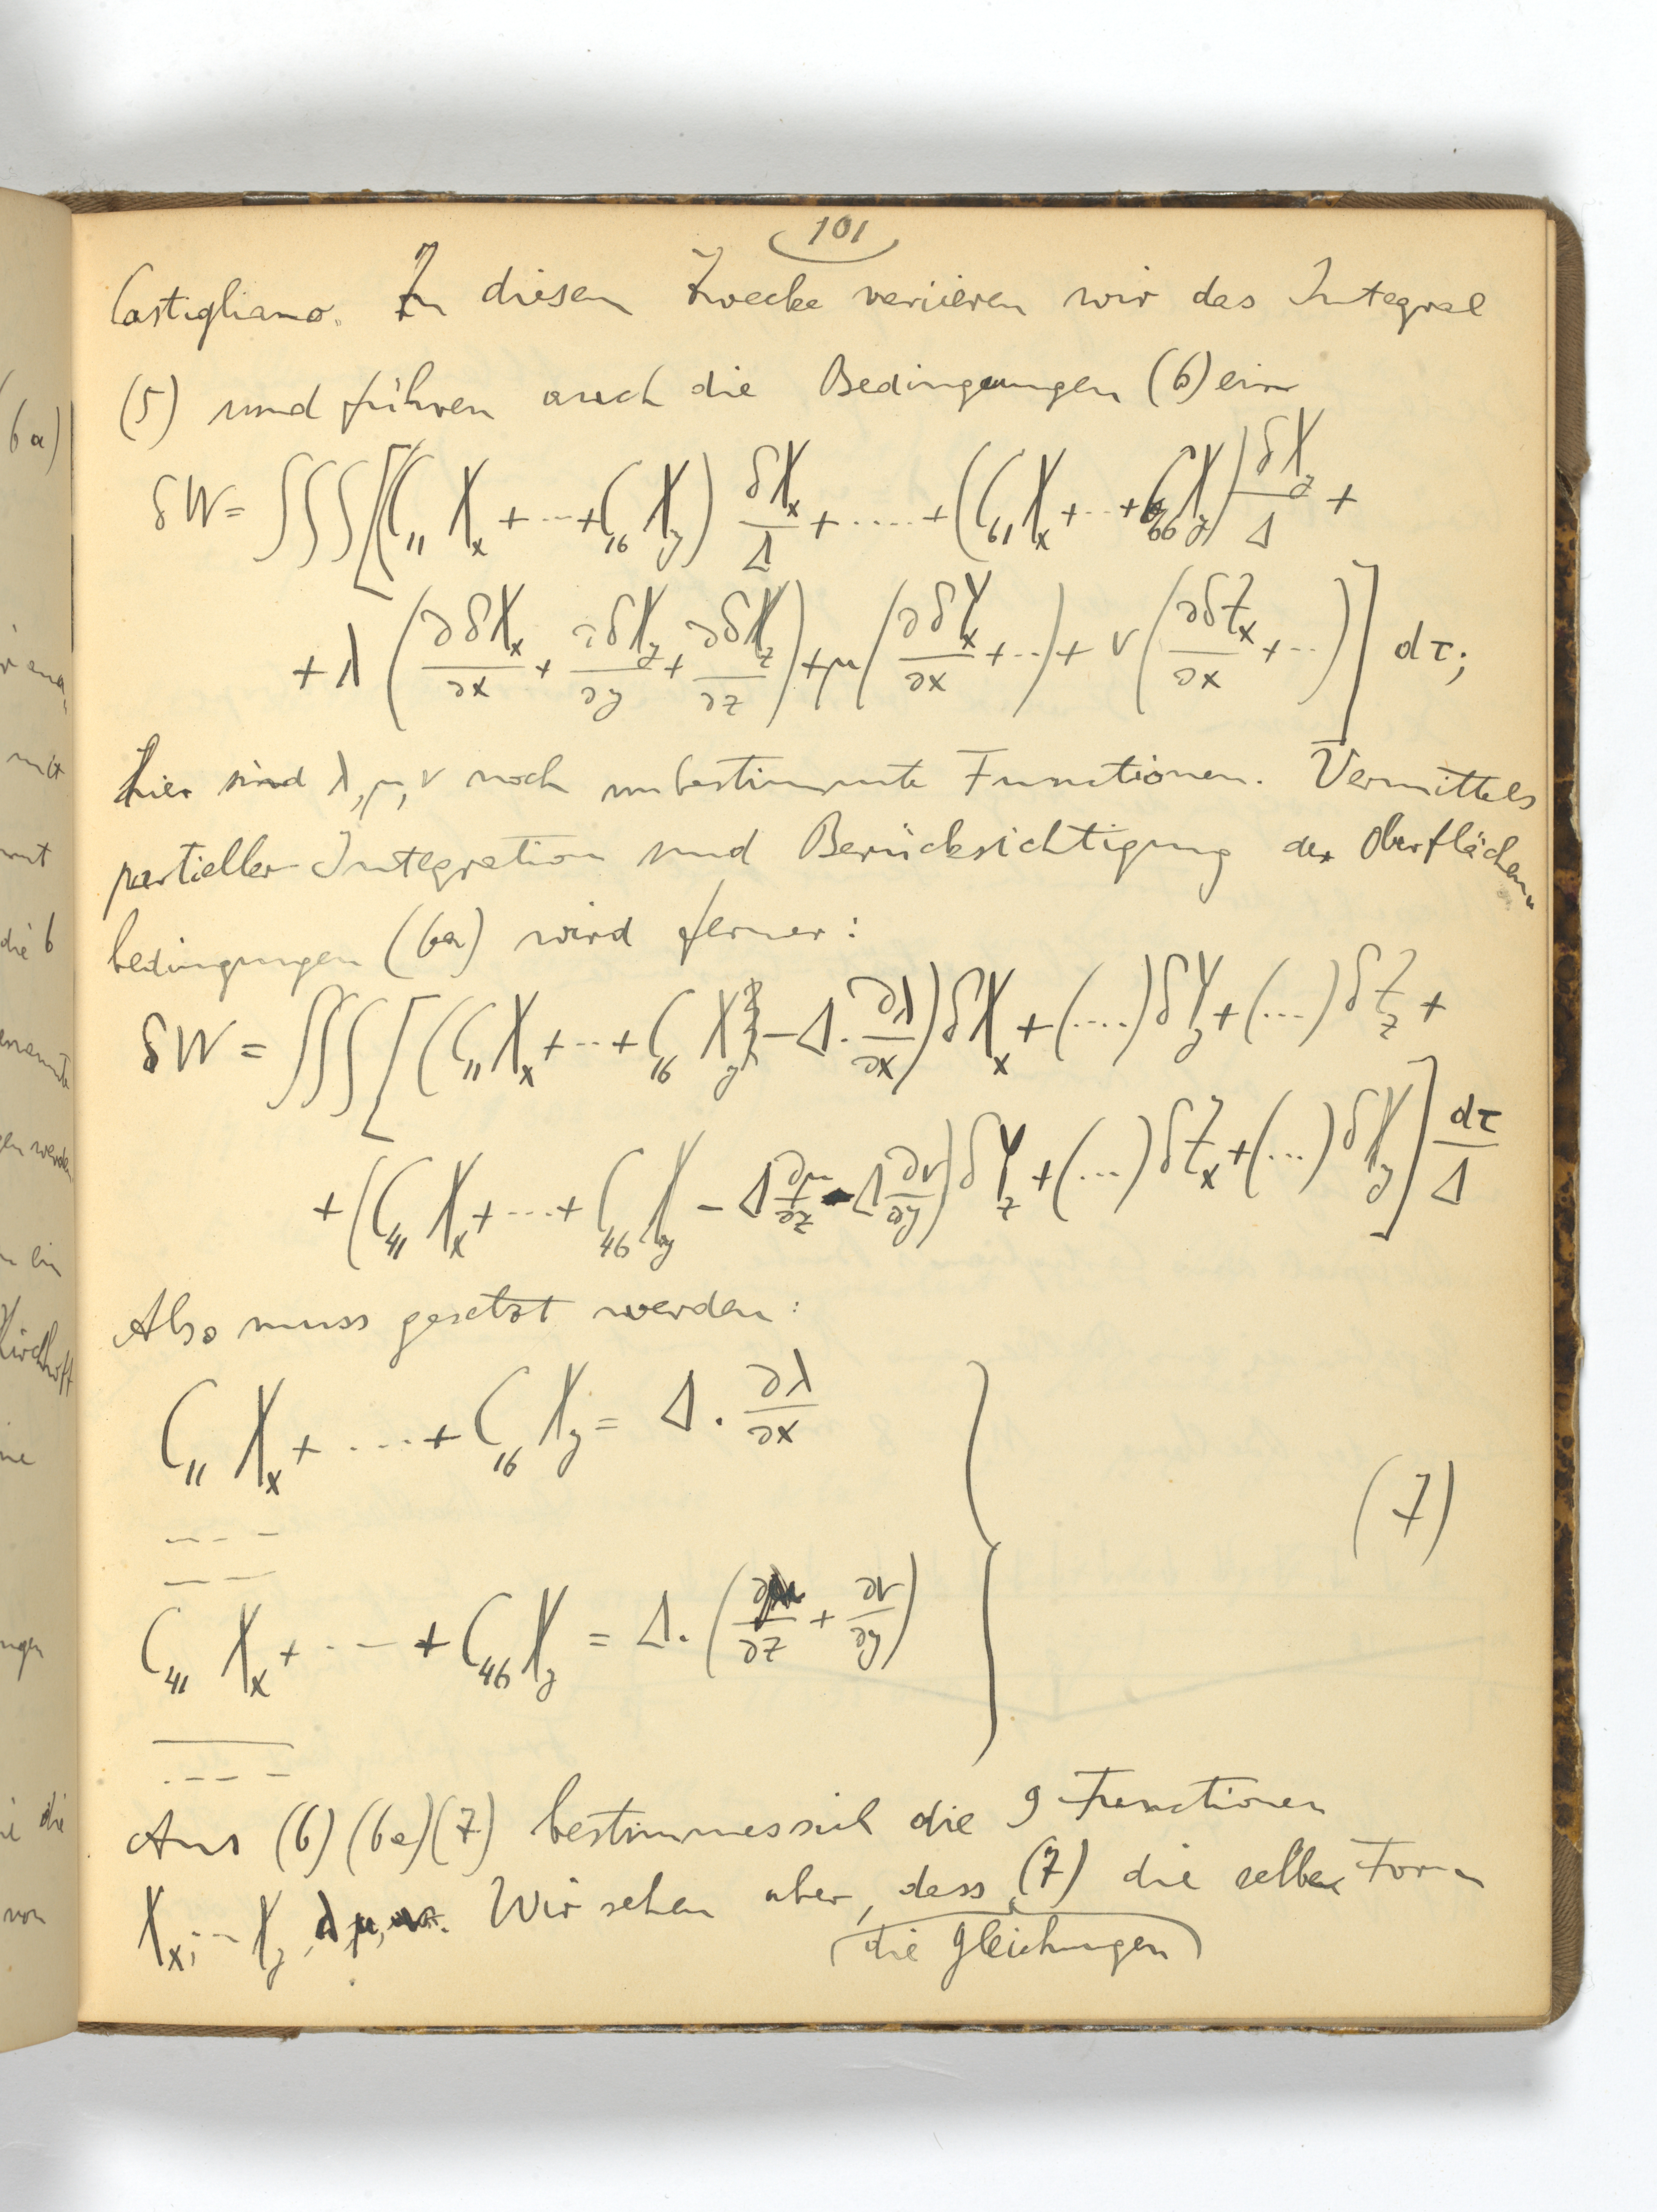 101
Castigliano. Zu diesem Zwecke variieren wir das Integral
(5) und führen auch die Bedingungen (6) ein
δW = ∫∫∫[(C₁₁ Xₓ + ··· + C₁₆ X_y) δXₓ/Δ + ···· + (C₆₁ Xₓ + ··· + C₆₆ X_y) δX_y/Δ +
+ λ (∂δXₓ/∂x + ∂δX_y/∂y + ∂δX_z/∂z) + μ (∂δYₓ/∂x + ···) + ν (∂δZₓ/∂x + ···)] dτ;
hier sind λ, μ, ν noch unbestimmte Functionen. Vermittels
partieller Integration und Berücksichtigung der Oberflächen„
bedingungen (6a) wird ferner:
δW = ∫∫∫[(C₁₁ Xₓ + ··· + C₁₆ X_y − Δ · ∂λ/∂x) δXₓ + (····) δY_y + (···) δZ_z +
+ (C₄₁ Xₓ + ··· + C₄₆ X_y − Δ ∂μ/∂z − Δ ∂ν/∂y) δY_z + (···) δZₓ + (···) δX_y] dτ/Δ
Also muss gesetzt werden:
C₁₁ Xₓ + ···· + C₁₆ X_y = Δ · ∂λ/∂x
– – – –
– – –
(7)
C₄₁ Xₓ + · · – + C₄₆ X_y = Δ · (∂μ/∂z + ∂ν/∂y)
– – – –
Aus (6) (6a) (7) bestimmes sich die 9 Functionen
Xₓ, ·· X_y, λ, μ, ν. Wir sehen aber, dass (7) die selbe Form
die Gleichungen
6a)
mit
die 6
werden
ein
Kirchhoff
die
von